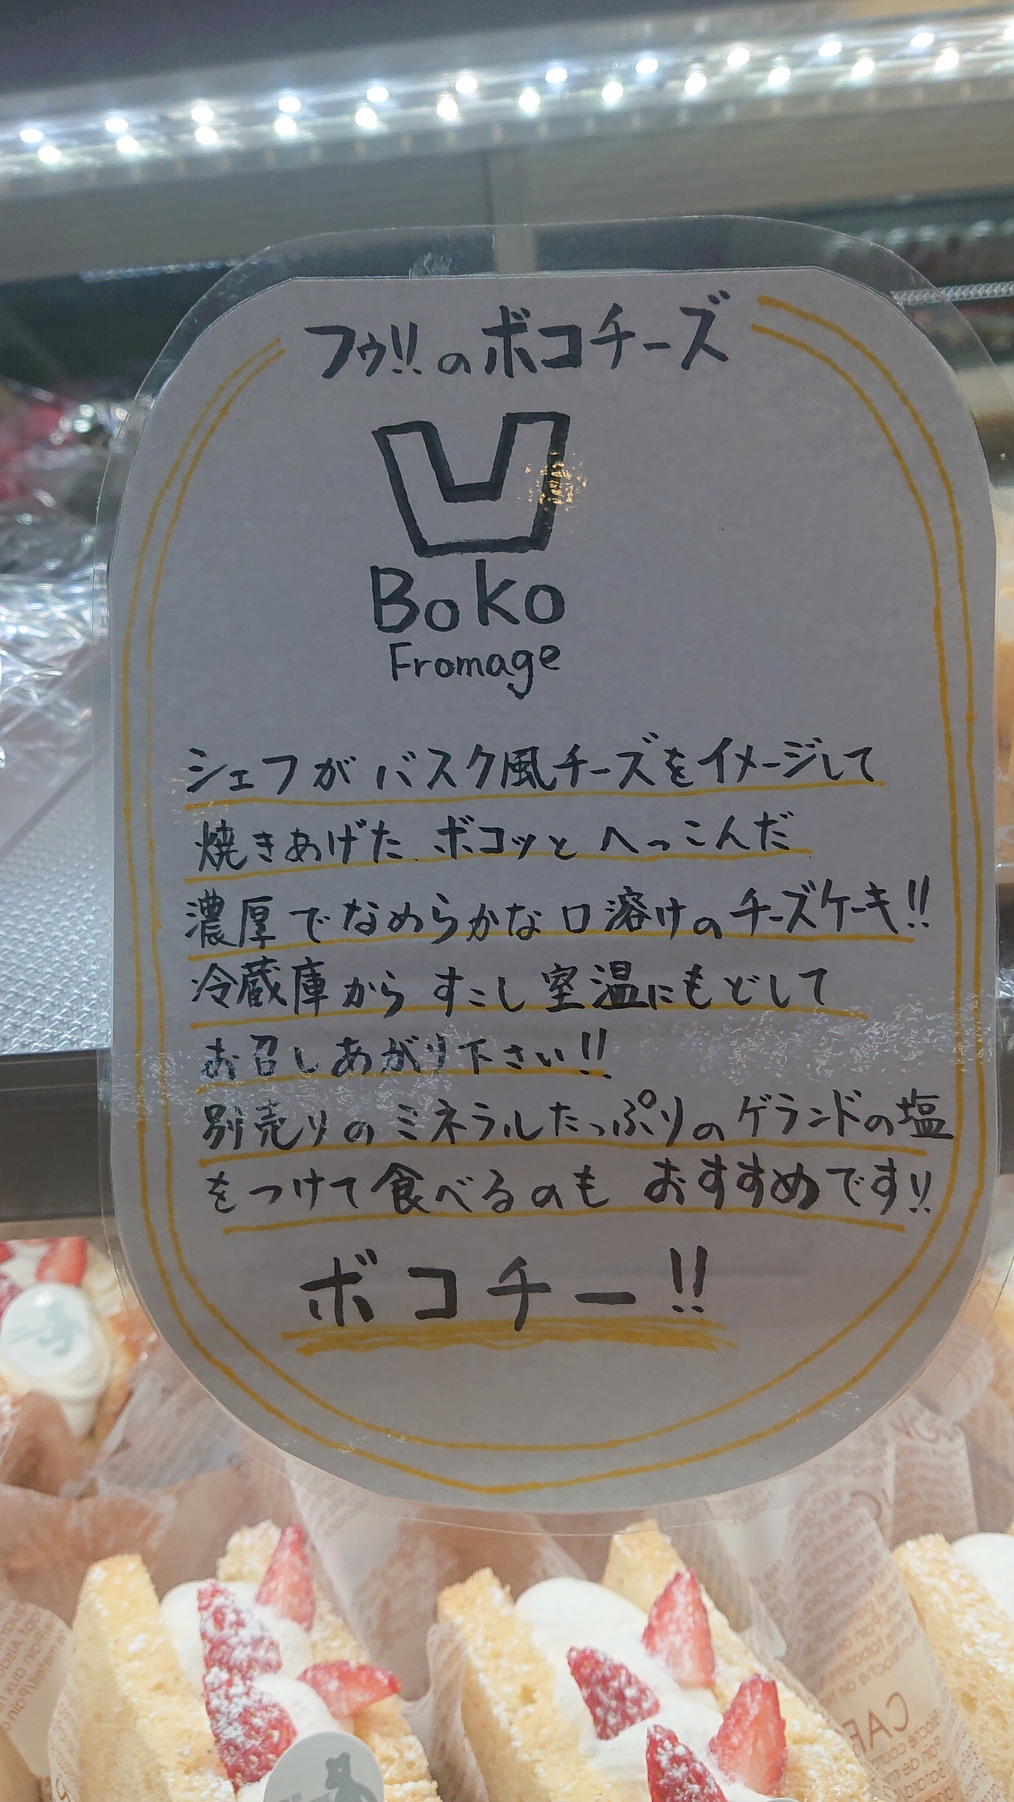 フゥ!!のボコチーズ
Boko
Fromage
シェフがバスク風チーズをイメージして
焼きあげた ボコッと へっこんだ
濃厚でなめらかな口溶けのチーズケーキ!!
冷蔵庫から すこし 室温にもどして
お召しあがり下さい!!
別売りのミネラルたっぷりのゲランドの塩
をつけて食べるのも おすすめです!!
ボコチー!!
CAF